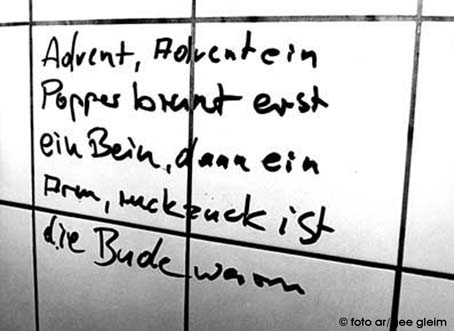 Advent, Advent ein
Popper brennt erst
ein Bein, dann ein
Arm, ruckzuck ist
die Bude warm
© foto ar/gee gleim